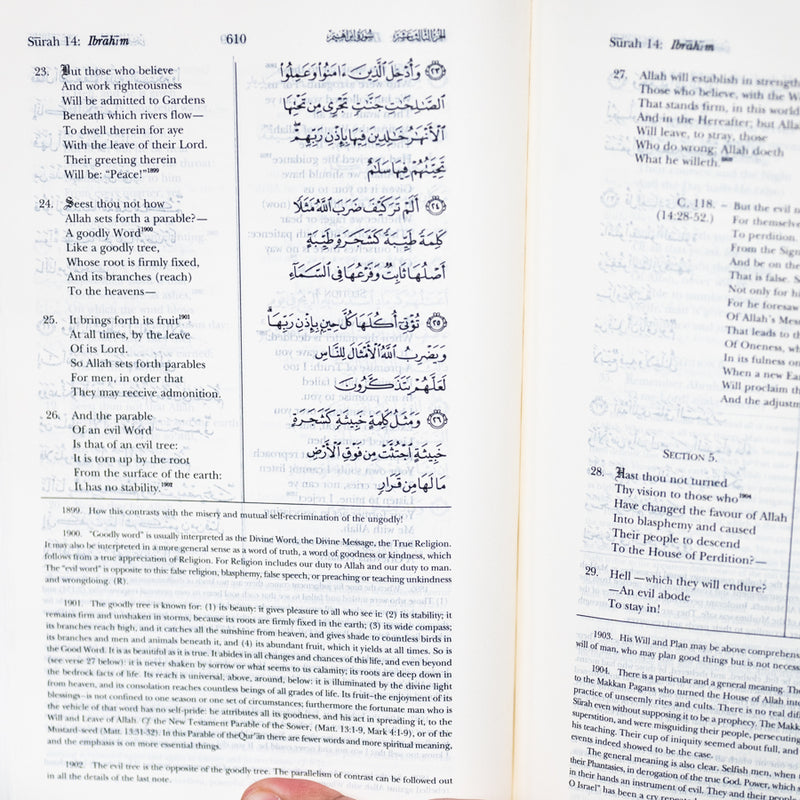 Sūrah 14: Ibrāhīm
610
سورة إبراهيم
الجزء الثالث عشر
23. But those who believe
And work righteousness
Will be admitted to Gardens
Beneath which rivers flow—
To dwell therein for aye
With the leave of their Lord.
Their greeting therein
Will be: "Peace!"1899
24. Seest thou not how
Allah sets forth a parable?—
A goodly Word1900
Like a goodly tree,
Whose root is firmly fixed,
And its branches (reach)
To the heavens—
25. It brings forth its fruit1901
At all times, by the leave
Of its Lord.
So Allah sets forth parables
For men, in order that
They may receive admonition.
26. And the parable
Of an evil Word
Is that of an evil tree:
It is torn up by the root
From the surface of the earth:
It has no stability.1902
﴿٢٣﴾ وَأُدْخِلَ ٱلَّذِينَ ءَامَنُوا۟ وَعَمِلُوا۟
ٱلصَّـٰلِحَـٰتِ جَنَّـٰتٍ تَجْرِى مِن تَحْتِهَا
ٱلْأَنْهَـٰرُ خَـٰلِدِينَ فِيهَا بِإِذْنِ رَبِّهِمْ
تَحِيَّتُهُمْ فِيهَا سَلَـٰمٌ
﴿٢٤﴾ أَلَمْ تَرَ كَيْفَ ضَرَبَ ٱللَّهُ مَثَلًا
كَلِمَةً طَيِّبَةً كَشَجَرَةٍ طَيِّبَةٍ
أَصْلُهَا ثَابِتٌ وَفَرْعُهَا فِى ٱلسَّمَآءِ
﴿٢٥﴾ تُؤْتِىٓ أُكُلَهَا كُلَّ حِينٍۭ بِإِذْنِ رَبِّهَا
وَيَضْرِبُ ٱللَّهُ ٱلْأَمْثَالَ لِلنَّاسِ
لَعَلَّهُمْ يَتَذَكَّرُونَ
﴿٢٦﴾ وَمَثَلُ كَلِمَةٍ خَبِيثَةٍ كَشَجَرَةٍ
خَبِيثَةٍ ٱجْتُثَّتْ مِن فَوْقِ ٱلْأَرْضِ
مَا لَهَا مِن قَرَارٍ
1899. How this contrasts with the misery and mutual self-recrimination of the ungodly!
1900. "Goodly word" is usually interpreted as the Divine Word, the Divine Message, the True Religion.
It may also be interpreted in a more general sense as a word of truth, a word of goodness or kindness, which
follows from a true appreciation of Religion. For Religion includes our duty to Allah and our duty to man.
The "evil word" is opposite to this: false religion, blasphemy, false speech, or preaching or teaching unkindness
and wrongdoing. (R).
1901. The goodly tree is known for: (1) its beauty: it gives pleasure to all who see it: (2) its stability; it
remains firm and unshaken in storms, because its roots are firmly fixed in the earth; (3) its wide compass;
its branches reach high, and it catches all the sunshine from heaven, and gives shade to countless birds in
its branches and men and animals beneath it, and (4) its abundant fruit, which it yields at all times. So is
the Good Word. It is as beautiful as it is true. It abides in all changes and chances of this life, and even beyond
(see verse 27 below): it is never shaken by sorrow or what seems to us calamity; its roots are deep down in
the bedrock facts of life. Its reach is universal, above, around, below: it is illuminated by the divine light
from heaven, and its consolation reaches countless beings of all grades of life. Its fruit–the enjoyment of its
blessings–is not confined to one season or one set of circumstances; furthermore the fortunate man who is
the vehicle of that word has no self-pride: he attributes all its goodness, and his act in spreading it, to the
Will and Leave of Allah. Cf the New Testament Parable of the Sower, (Matt. 13:1-9, Mark 4:1-9), or of the
Mustard-seed (Matt. 13:31-32). In this Parable of the Qur'ān there are fewer words and more spiritual meaning,
and the emphasis is on more essential things.
1902. The evil tree is the opposite of the goodly tree. The parallelism of contrast can be followed out
in all the details of the last note.
Sūrah 14: Ibrāhīm
27. Allah will establish in strength
Those who believe, with the
That stands firm, in this world
And in the Hereafter; but Allah
Will leave, to stray, those
Who do wrong: Allah doeth
What he willeth.
C. 118. – But the evil
(14:28-52.) For themselves
To perdition.
From the Sign
And be on the
That is false. S
Not only for hi
For he foresaw
Of Allah's Mess
That leads to th
Of Oneness, wh
In its fulness on
When a new Ear
Will proclaim th
And the adjustm
SECTION 5.
28. Hast thou not turned
Thy vision to those who1904
Have changed the favour of Allah
Into blasphemy and caused
Their people to descend
To the House of Perdition?—
29. Hell—which they will endure?
—An evil abode
To stay in!
1903. His Will and Plan may be above comprehens
will of man, who may plan good things but is not necess
1904. There is a particular and a general meaning. The
to the Makkan Pagans who turned the House of Allah into
practice of unseemly rites and cults. There is no real dif
Sūrah even without supposing it to be a prophecy. The Makka
superstition, and were misguiding their people, persecuting
his teaching. Their cup of iniquity seemed about full, and
events indeed showed to be the case.
The general meaning is also clear. Selfish men, when
their Phantasies, in derogation of the true God. Power, which
in their hands an instrument of evil. They and their people
O Israel" has been a cry repeated